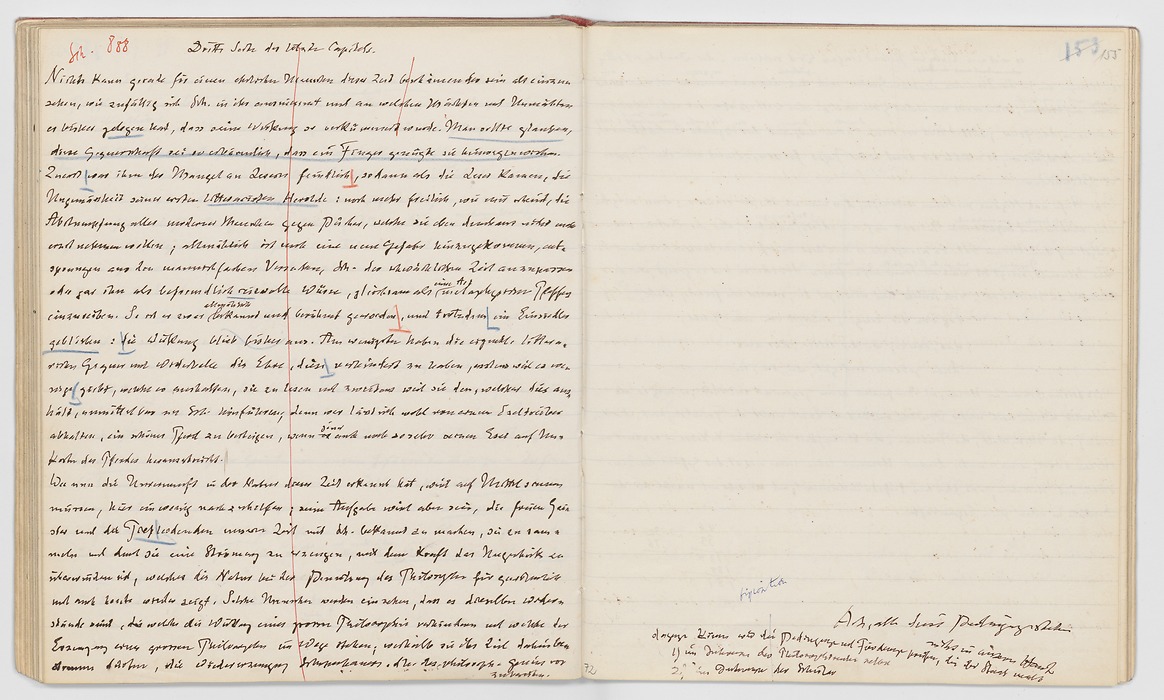 Sch. 888
Dritte Seite des letzten Capitels.
Nichts kann gerade für einen ehrlichen Menschen dieser Zeit beschämender sein als einzu-
sehen, wie zufällig sich Sch. in ihr ausnimmt und an welchen Mächten und Unmächten
es bisher gelegen hat, dass seine Wirkung so verkümmert wurde. Man sollte glauben,
diese Gegnerschaft sei so erbärmlich, dass ein Finger genügte sie hinwegzu
Zuerst war ihm der Mangel an Lesern feindlich, sodann als die Leser kamen, die
Ungemässheit seiner ersten litterarischen Herolde: noch mehr freilich, wie mir scheint, die
Abstumpfung aller modernen Menschen gegen Bücher, welche sie eben durchaus nicht mehr
ernst nehmen wollen; allmählich ist noch eine neue Gefahr hinzugekommen, ent-
sprungen aus den mannichfachen Versuchen, Sch. der schwächlichen Zeit anzupassen
oder gar ihn als befremdliche reizvolle Würze, gleichsam als eine Art metaphysischen Pfeffers
einzureiben. So ist er zwar allmählich bekannt und berühmt geworden, und trotzdem ein Einsiedler
geblieben: die Wirkung blieb bisher aus. Am wenigsten haben die eigentlich littera-
rischen Gegner und Widerbeller die Ehre, diese verhindert zu haben, erstens weil es we-
nige giebt, welche es aushalten, sie zu lesen und zweitens weil sie den, welcher dies aus-
hält, unmittelbar zu Sch. hinführen; denn wer lässt sich wohl von einem Eseltreiber
abhalten, ein schönes Pferd zu besteigen, wenn jener auch noch so sehr seinen Esel auf Un-
kosten des Pferdes herausstreicht.
Wer nun die Unvernunft in der Natur dieser Zeit erkannt hat, wird auf Mittel sinnen
müssen, hier ein wenig nachzuhelfen; seine Aufgabe wird aber sein, die freien Gei-
ster und die Tiefleidenden unserer Zeit mit Sch. bekannt zu machen, sie zu sam-
meln und durch sie eine Strömung zu erzeugen, mit deren Kraft das Ungeschick zu
überwinden ist, welches die Natur bei der Benutzung des Philosophen für gewöhnlich
und auch heute wieder zeigt. Solche Menschen werden einsehen, dass es dieselben Wider-
stände sind, die welche die Wirkung einer grossen Philosophie verhindern und welche der
Erzeugung eines grossen Philosophen im Wege stehen; weshalb sie ihr Ziel dahin
dürfen, die Wiedererzeugung Schopenhauers, d. h. des philosoph. Genius vor-
zubereiten.
155
72
1) im Interesse des
2) im Interesse der